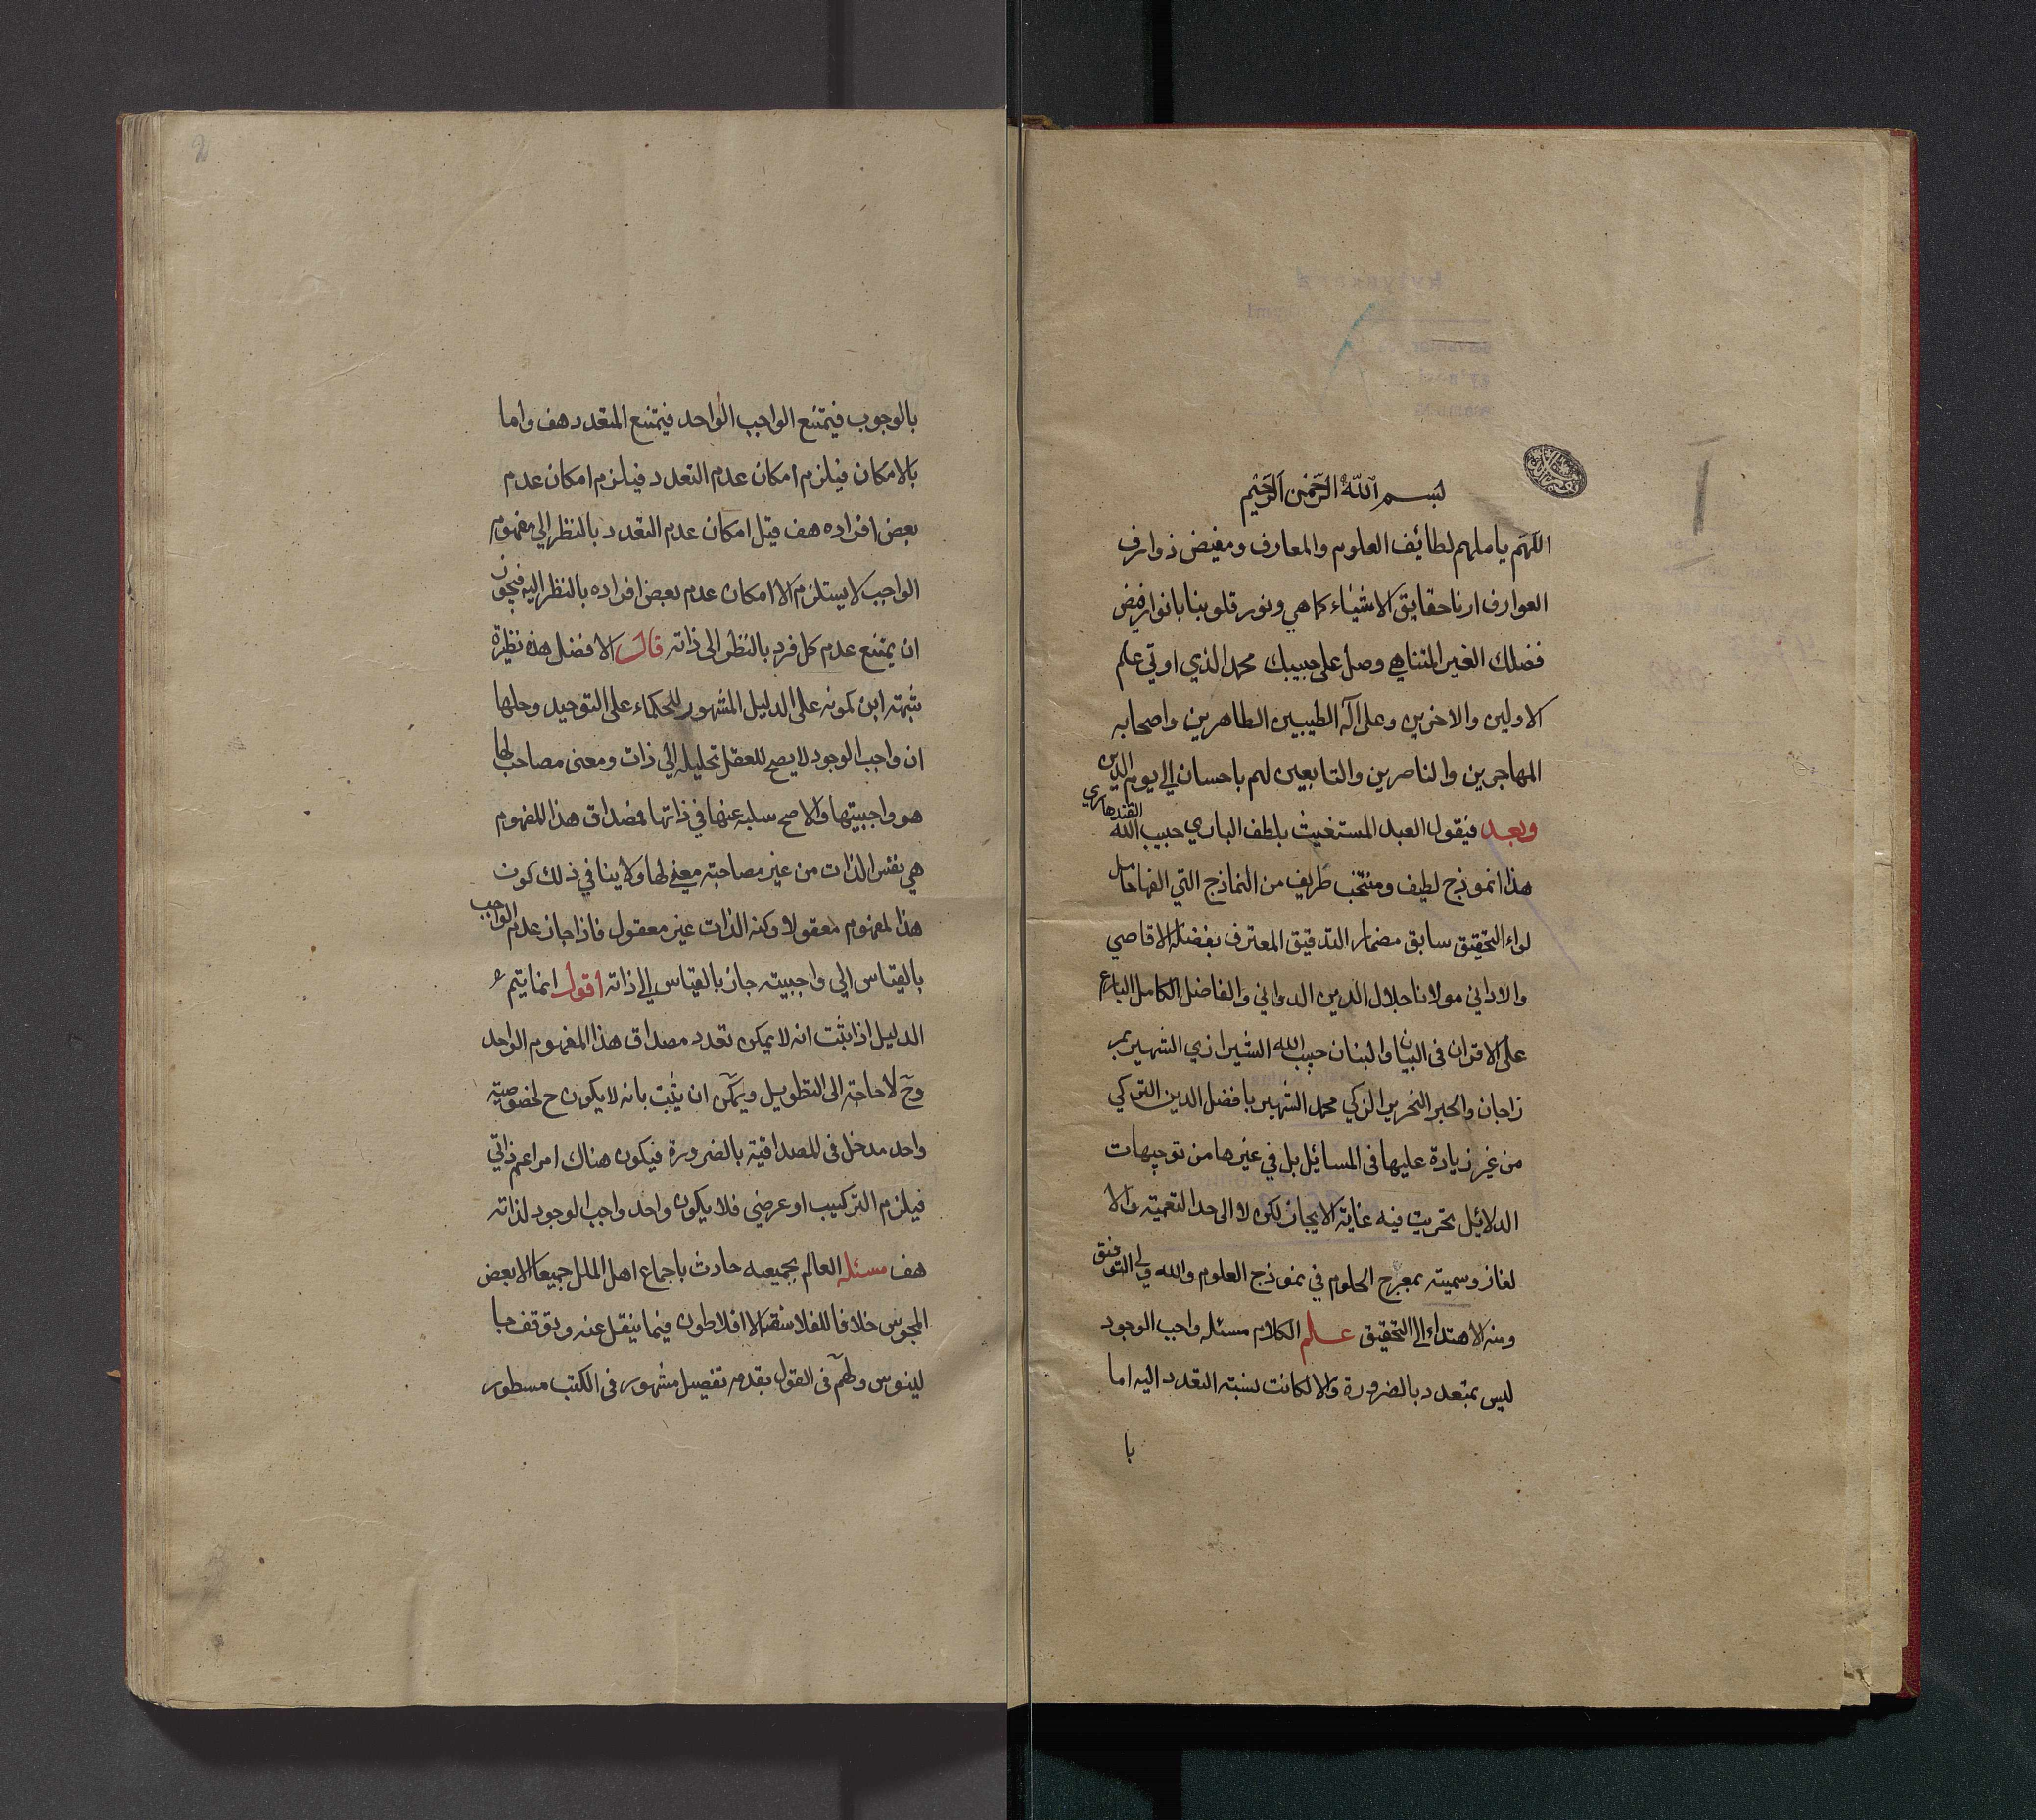 بسم الله الرحمن الرحيم
اللهم يا ملهم لطائف العلوم والمعارف ومفيض ذوارف
العوارف ارنا حقايق الاشياء كما هي ونور قلوبنا بانوار فيض
فضلك الغير المتناهي وصل على حبيبك محمد الذي اوتي علم
الاولين والاخرين وعلى اله الطيبين الطاهرين واصحابه
المهاجرين والناصرين والتابعين لهم باحسان الى يوم الدين
وبعد فيقول العبد المستغيث بلطف الباري حبيب الله القندهاري
هذا انموذج لطيف ومنتخب طريف من النماذج التي الفها حامل
لواء التحقيق سابق مضمار التدقيق المعترف بفضله الاقاصي
والاداني مولانا جلال الدين الدواني والفاضل الكامل البارع
على الاقران في البيان والبنان حبيب الله الشيرازي الشهير بمر
زاجان والحبر النحرير الزكي محمد الشهير بافضل الدين التركي
من غير زيادة عليها في المسائل بل في غيرها من توجيهات
الدلائل تحريت فيه غاية الايجاز لكن لا الى حد التعمية والا
لغاز وسميته بمعرج الحلوم في نموذج العلوم والله ولي التوفيق
ومنه الاهتداء الى التحقيق علم الكلام مسئله واجب الوجود
ليس بمتعدد بالضرورة والا لكانت نسبته التعدد اليه اما
با
بالوجوب فيمتنع الواجب الواحد فيمتنع المتعدد هف واما
بالامكان فيلزم امكان عدم التعدد فيلزم امكان عدم
بعض افراده هف قيل امكان عدم التعدد بالنظر الي مفهوم
الواجب لا يستلزم الا امكان عدم بعض افراده بالنظر اليه فيجوز
ان يمتنع عدم كل فرد بالنظر الى ذاته قال الافضل هذه نظيرة
شبهته ابن كمونه على الدليل المشهور للحكماء على التوحيد وحلها
ان واجب الوجود لا يصح للعقل تحليله الي ذات ومعنى مصاحب لها
هو واجبيتها والا صح سلبه عنها في ذاتها فمصداق هذا المفهوم
هي نفس الذات من غير مصاحبته معني لها ولا ينافي ذلك كون
هذا لمفهوم معقولا وكنه الذات غير معقول فاذا جاز عدم الواجب
بالقياس الي واجبيته جاز بالقياس الى ذاته اقول انما يتم
الدليل اذا ثبت انه لا يمكن تعدد مصداق هذا المفهوم الواحد
وح لا حاجة الى التطويل ويمكن ان يثبت بانه لا يكون ح لخصوصيته
واحد مدخل في المصداقية بالضرورة فيكون هناك امر اعم ذاتي
فيلزم التركيب او عرضي فلا يكون واحد واجب الوجود لذاته
هف مسئله العالم بجميعه حادث باجماع اهل الملل جميعا الا بعض
المجوس خلافا للفلاسفة الا افلاطون فيما ينقل عنه وتوقف جا
لينوس ولهم في القول بقدمه تفصيل مشهور في الكتب مسطور